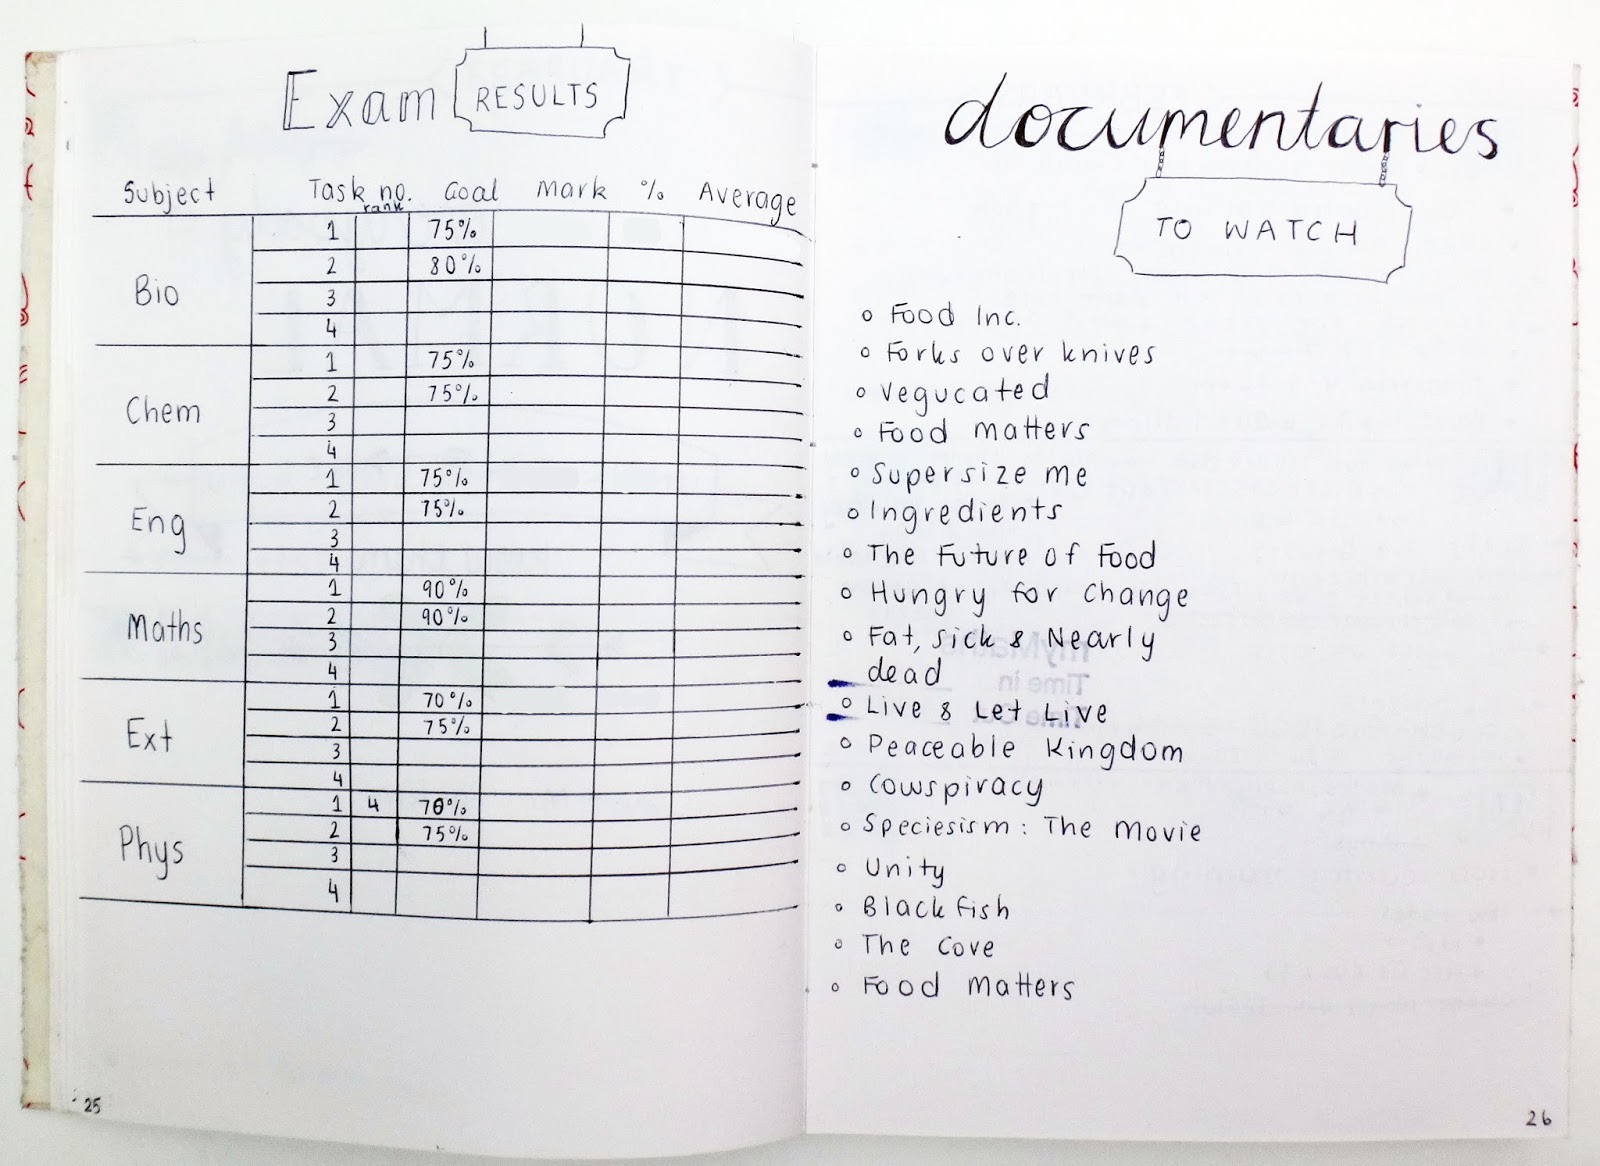 Exam RESULTS
Subject Task no. rank Goal Mark % Average
Bio
1 75%
2 80%
3
4
Chem
1 75%
2 75%
3
4
Eng
1 75%
2 75%
3
4
Maths
1 90%
2 90%
3
4
Ext
1 70%
2 75%
3
4
Phys
1 4 70%
2 75%
3
4
25
documentaries
TO WATCH
o Food Inc.
o Forks over knives
o Vegucated
o Food matters
o Supersize me
o Ingredients
o The Future of Food
o Hungry for Change
o Fat, Sick & Nearly
dead
o Live & Let Live
o Peaceable Kingdom
o Cowspiracy
o Speciesism: The Movie
o Unity
o Blackfish
o The Cove
o Food Matters
26